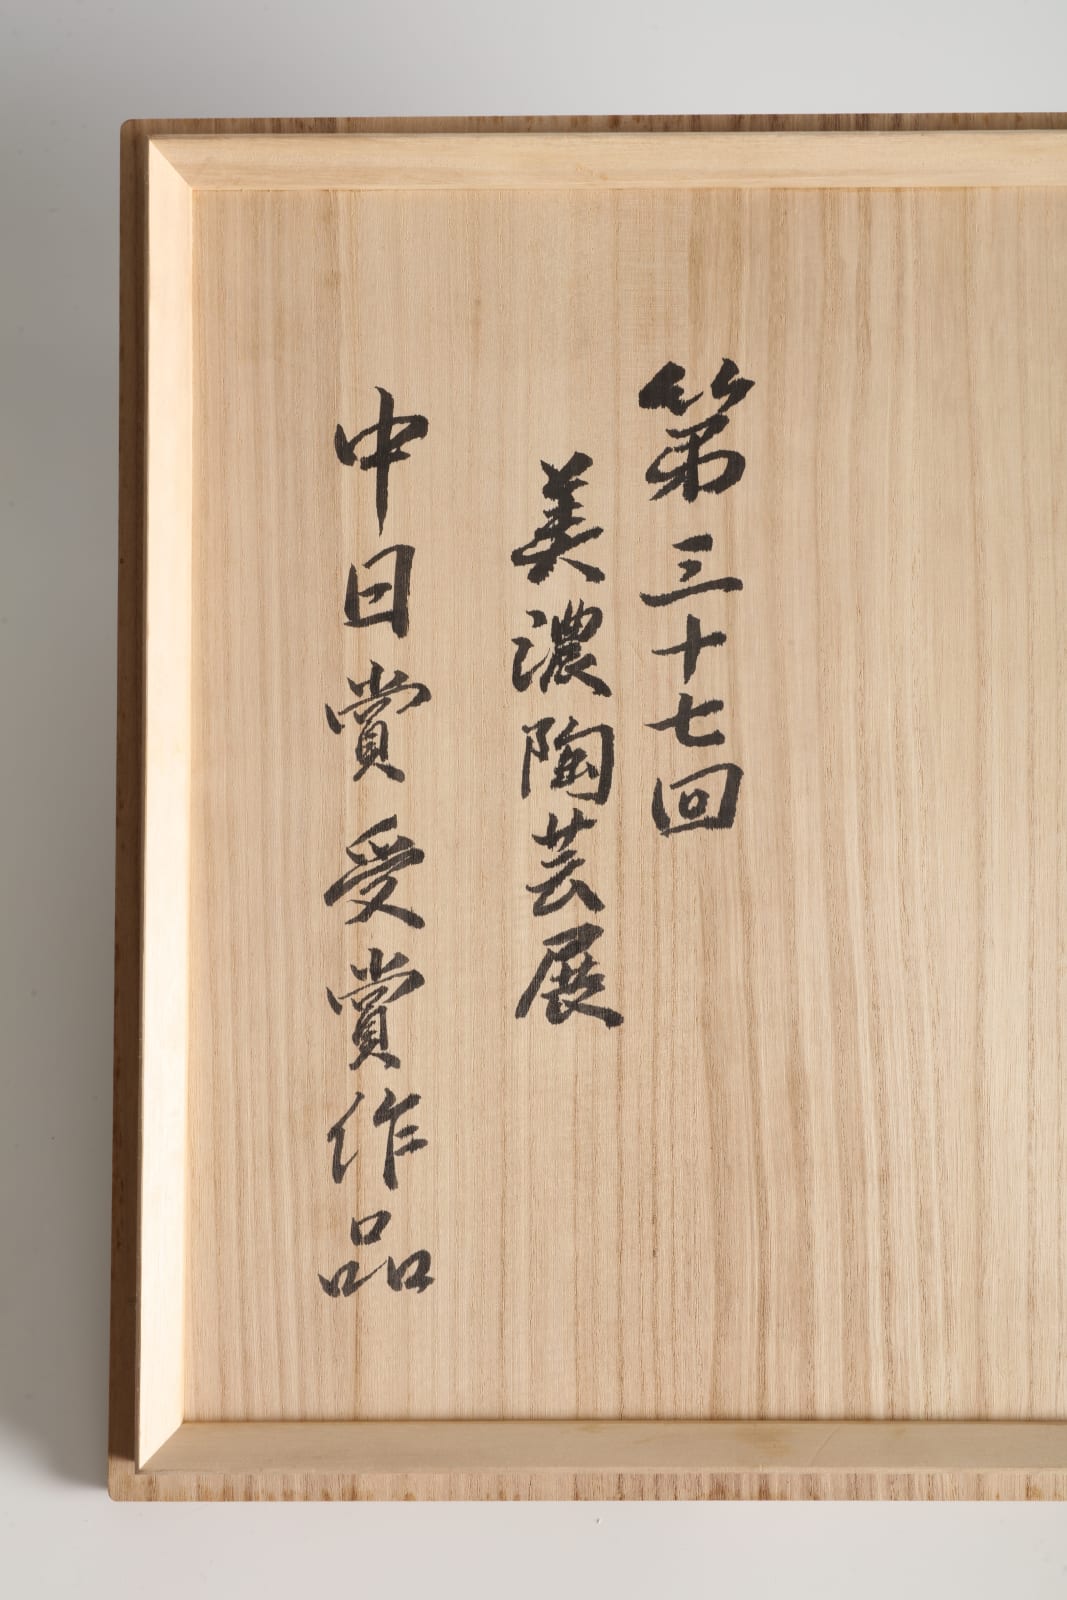 第三十七回
美濃陶芸展
中日賞受賞作品